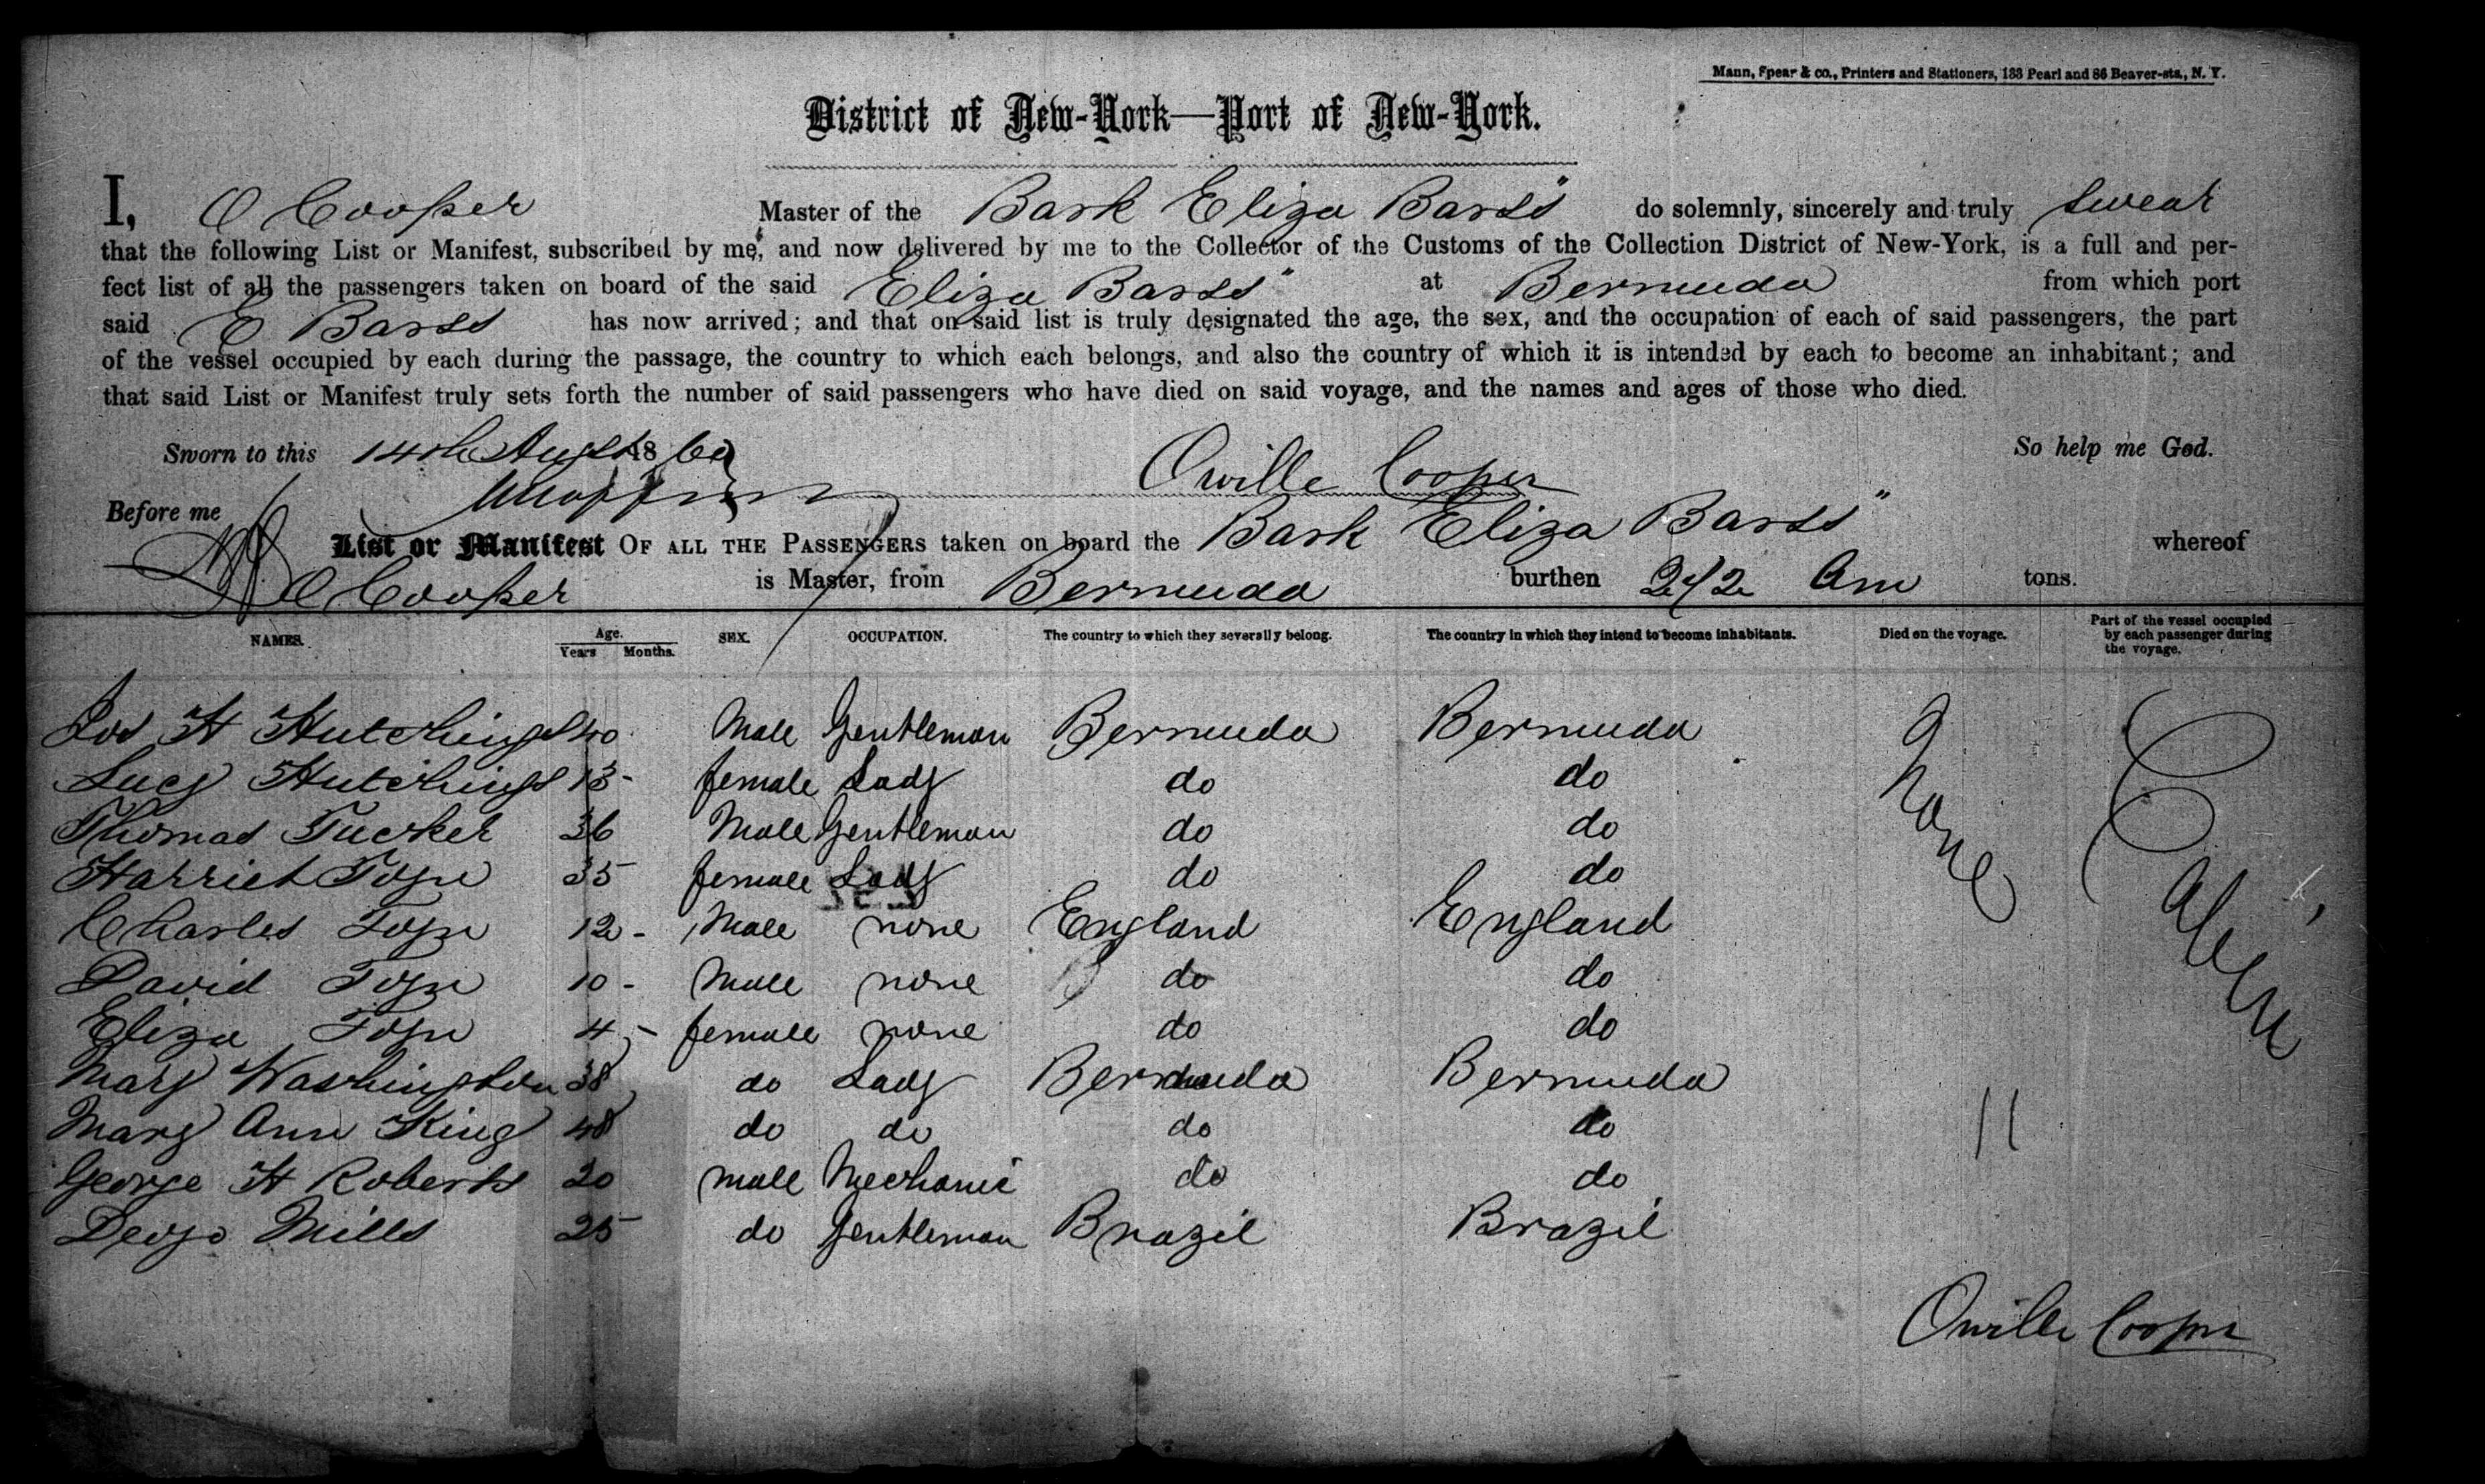 Mann, Spear & co., Printers and Stationers, 133 Pearl and 86 Beaver-sts., N. Y.
District of New-York—Port of New-York.
I, O Cooper Master of the Bark Eliza Barss" do solemnly, sincerely and truly swear
that the following List or Manifest, subscribed by me, and now delivered by me to the Collector of the Customs of the Collection District of New-York, is a full and per-
fect list of all the passengers taken on board of the said Eliza Barss" at Bermuda from which port
said E Barss has now arrived; and that on said list is truly designated the age, the sex, and the occupation of each of said passengers, the part
of the vessel occupied by each during the passage, the country to which each belongs, and also the country of which it is intended by each to become an inhabitant; and
that said List or Manifest truly sets forth the number of said passengers who have died on said voyage, and the names and ages of those who died.
Sworn to this 14th Augst 1860 Orville Cooper So help me God.
Before me
List or Manifest OF ALL THE PASSENGERS taken on board the Bark Eliza Barss" whereof
O Cooper is Master, from Bermuda burthen 242 Am tons.
NAMES. Age. Years Months. SEX. OCCUPATION. The country to which they severally belong. The country in which they intend to become inhabitants. Died on the voyage. Part of the vessel occupied by each passenger during the voyage.
Jos H Hutchings 40 Male Gentleman Bermuda Bermuda None Cabin
Lucy Hutchings 13 - female Lady do do
Thomas Tucker 36 Male Gentleman do do
Harriet 35 female Lady do do
Charles 12 - Male none England England
David 10 - Male none do do
Eliza 4 - female none do do
Mary Washington 38 do Lady Bermuda Bermuda
Mary Ann King 48 do do do do 11
George H Roberts 20 male Mechanic do do
Mills 25 do Gentleman Brazil Brazil
Orville Cooper